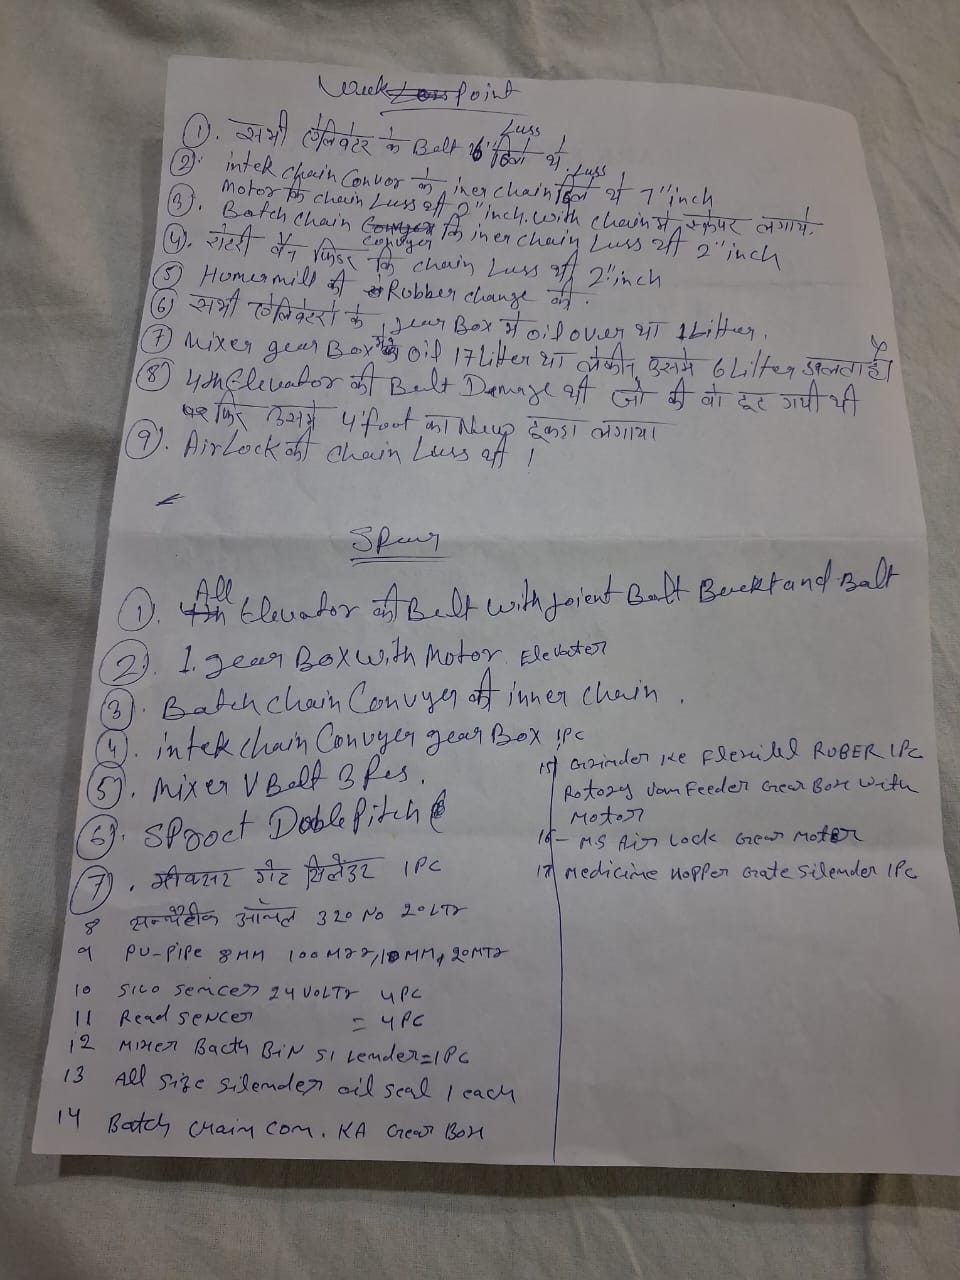 Point
①. सभी ऐलिवेटर के Belt 6" ढिला थे. Luss
②. intek chain Convor के iner chain ढिला थे Luss 7" inch
Motor कि chain Luss थी 2" inch. With chain मे स्क्रेपर लगाये.
③. Batch chain Convyer कि iner chain Luss थी 2" inch
④. रोटरी वेन फिडर कि chain Luss थी 2" inch
⑤ Homermill की Rubber change की.
⑥ सभी ऐलिवेटरो के gear Box मे oil over था 1 Litter.
⑦ Mixer gear Box मे oil 17 Liter था लेकीन उसमे 6 Litter डालता है।
⑧ 4th Elevator की Belt Damage थी जो की वो टूट गयी थी
पर फिर उसमे 4 foot का New टूकडा लगाया।
⑨. Air Lock की chain Luss थी !
Spear
①. All Elevator की Belt with joient Balt Buckt and Balt
②. 1. gear Box with Motor Elevater
③. Batch chain Convyer की inner chain.
④. intek chain Convyer gear Box 1PC
⑤. Mixer V Belt 3 Pes.
⑥. SProct Doble Pitch
⑦. मीक्सर गेट सिलेंडर 1PC
8 सन्थेटीक ऑयल 320 No 20 LTR
9 PU-PiPe 8MM 100 M22, 10MM, 20MTR
10 SILO Sencer 24 VOLTR 4PC
11 Read SENCER = 4PC
12 Mixer Bacth BiN SiLender = 1PC
13 All Size Silender oil seal 1 each
14 Batch chain con. KA Gear Box
15 Grinder Ke Flexibel RUBER 1PC
Rotory Van Feeder Gear Box with
Motor
16 - MS Air Lock Gear Moter
17 Medicine Hopper Gate Silender 1PC